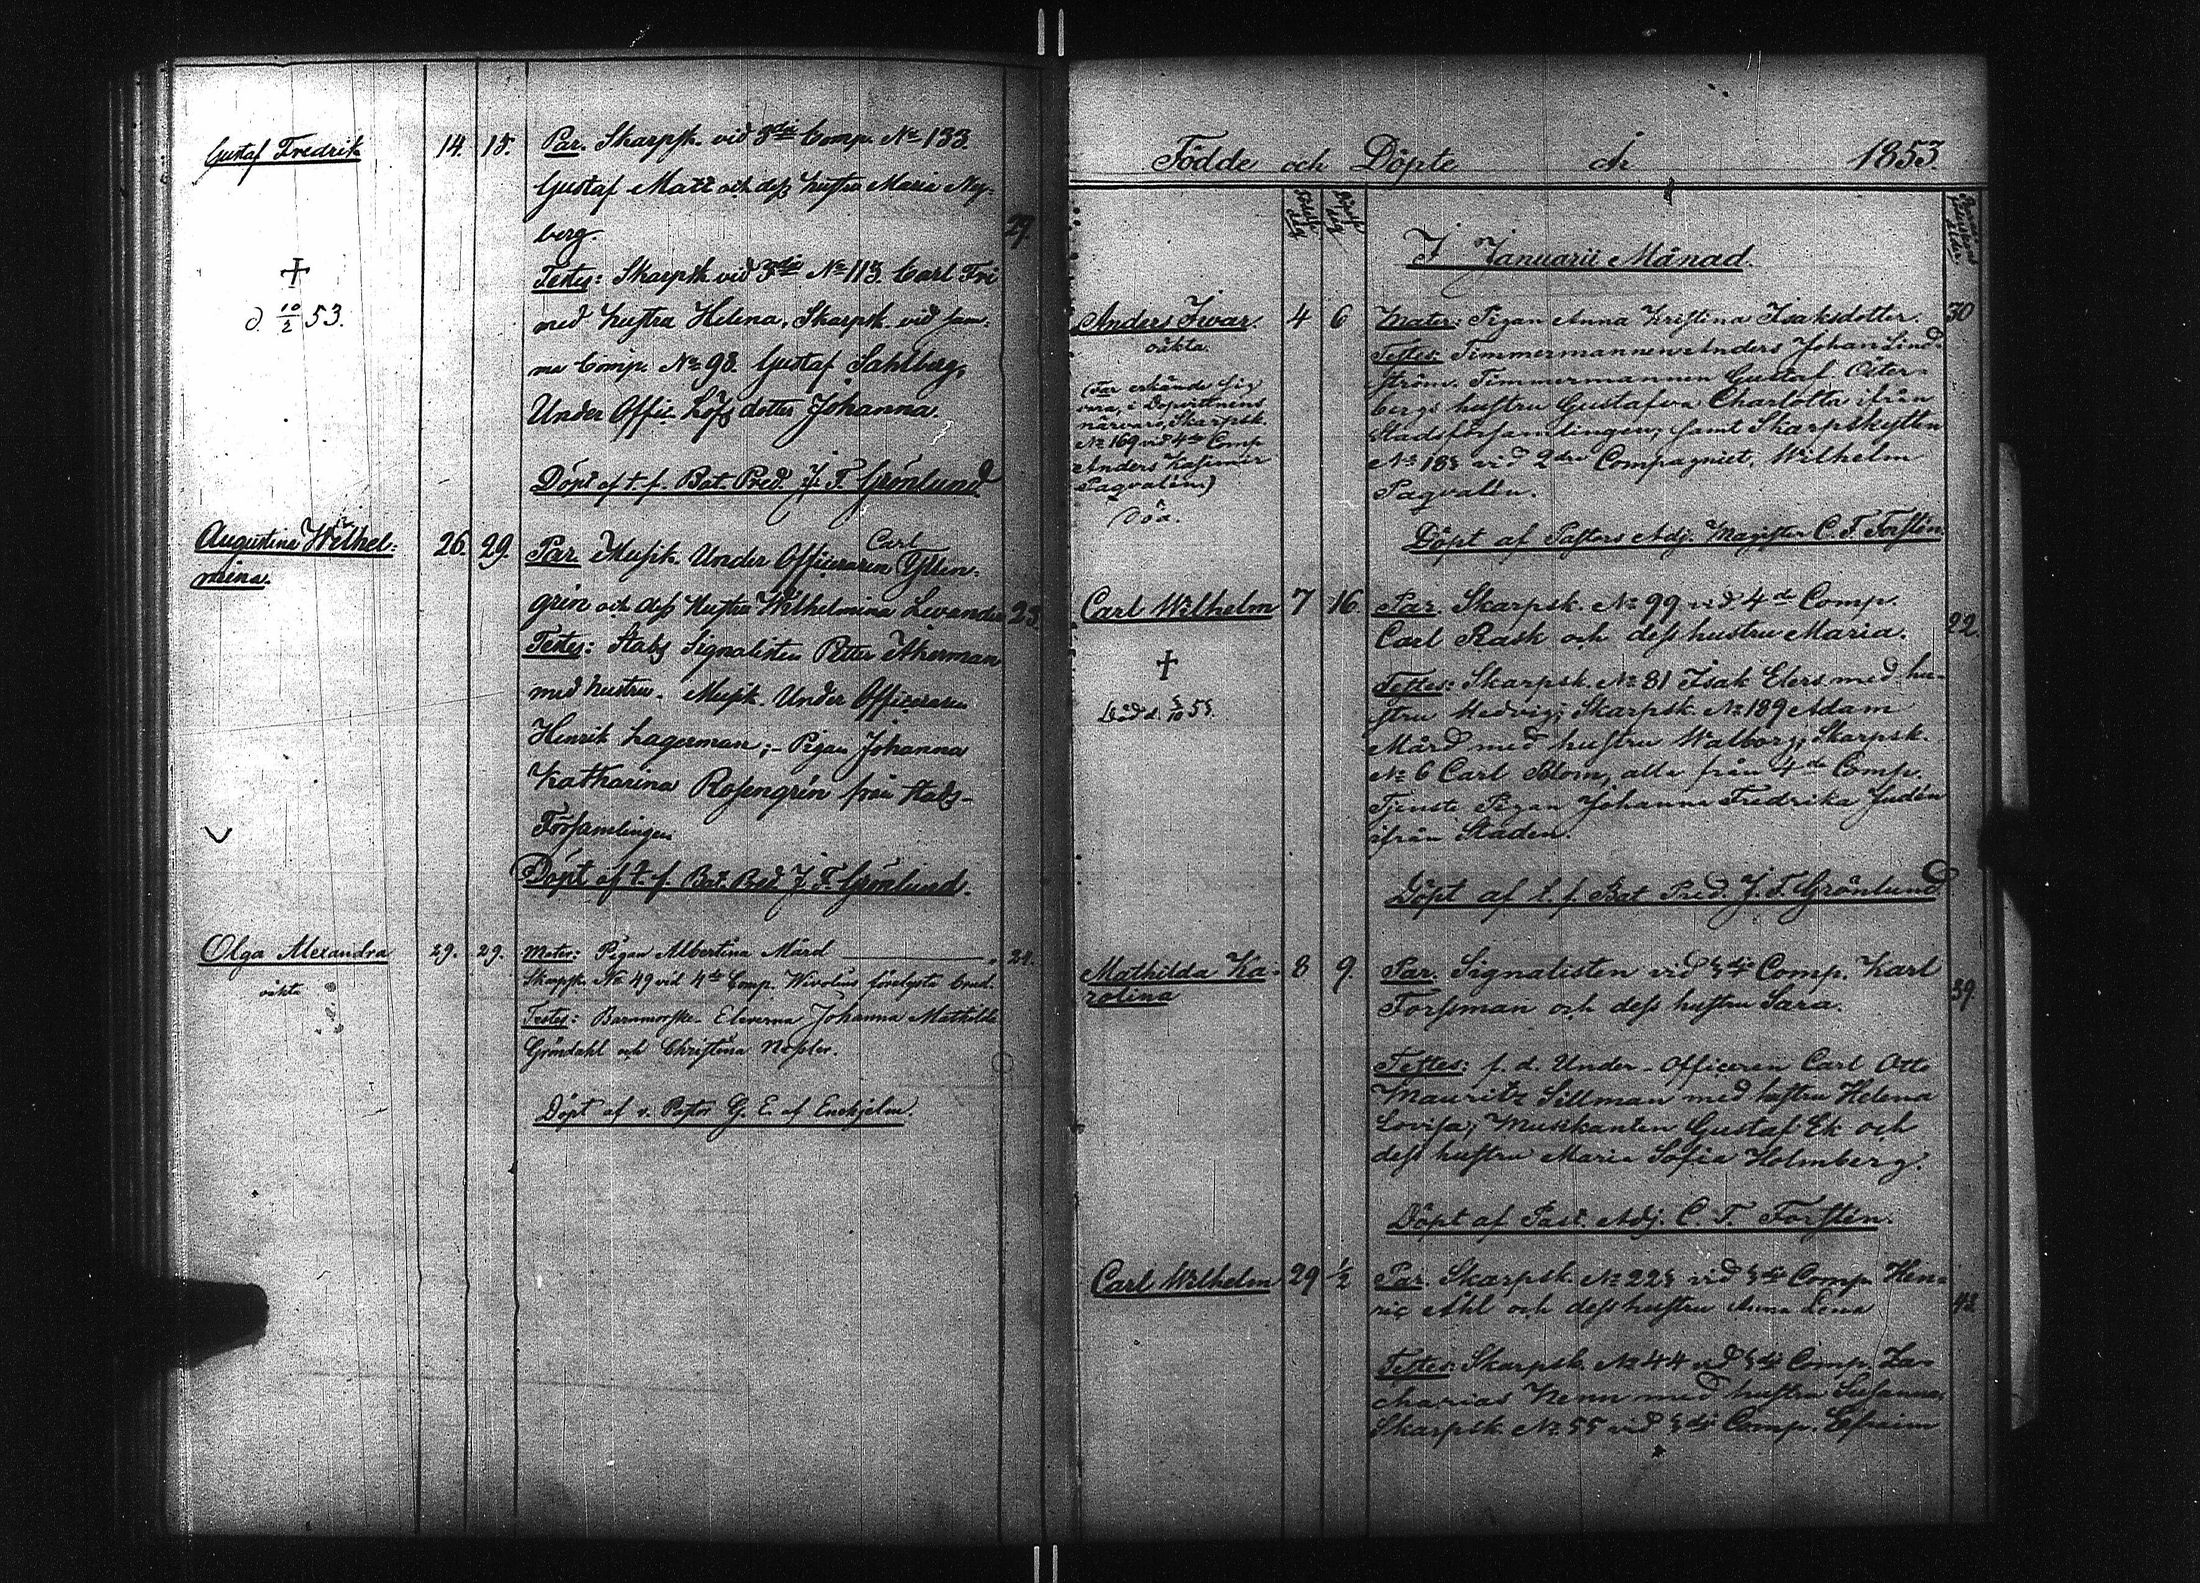 Gustaf Fredrik 14. 15. Par. Skarpsk. vid 3die Comp. No 133.
Gustaf Matt och dess hustru Maria Ny-
berg. 27
Testes: Skarpsk. vid 3die No 113. Carl Fri
med hustru Helena, Skarpsk. vid sam-
ma Comp. No 98. Gustaf Sahlberg,
Under Offic. Löfs dotter Johanna.
† d. 10/2 53.
Döpt af t. f. Bat. Pred. J. F. Grönlund.
Augustina Wilhel- 26. 29. Par. Musik. Under Officeraren Carl Ytten-
mina.
grén och dess Hustru Wilhelmina Levander 23.
Testes: Stabs Signalisten Petter Åkerman
med hustru. Musik. Under Officeraren
Henrik Lagerman; Pigan Johanna
Katharina Rosengrén från Stads-
Församlingen.
Döpt af t. f. Bat. Pred J. F. Grönlund.
Olga Alexandra 29. 29. Mater: Pigan Albertina Mård 21.
oäkta Skarpsk. No 49 vid 4de Comp. förelyste
Testes: Barnmorske-Eleverna Johanna Mathilda
Gröndahl och Christina
Döpt af v. Pastor G. E. af Enehjelm.
Födde och Döpte år 1853.
I Januarii Månad.
Anders Iwar. 4 6 Mater: Pigan Anna Kristina Isaksdotter. 30
oäkta.
Testes: Timmermannen Anders Johan Lind-
ström. Timmermannen Gustaf Öster-
bergs hustru Gustafva Charlotta ifrån
Stadsförsamlingen, samt Skarpskytten
No 185 vid 2dra Compagniet, Wilhelm
Pagvalin.
(Far erkände sig
vara, i Dopvittnens
närvaro, Skarpsk.
No 169 vid 4de Comp
Anders Kasimir
Pagvalin.)
Döpt af Pastors Adj. Magister C. F. Forstén
Carl Wilhelm 7 16. Par. Skarpsk. No 99 vid 4de Comp.
Carl Rask och dess hustru Maria. 22.
†
Död d. 5/10 55.
Testes: Skarpsk. No 81 Isak Elers med hu-
stru Hedvig; Skarpsk. No 189 Adam
Mård med hustru Walborg; Skarpsk.
No 6 Carl Blom, alla från 4de Comp.
Tjenste Pigan Johanna Fredrika Judén
ifrån Staden.
Döpt af t. f. Bat Pred. J. F. Grönlund
Mathilda Ka- 8 9. Par. Signalisten vid Comp. Karl
rolina
Forssman och dess hustru Sara. 39.
Testes: f. d. Under-Officeren Carl Otto
Mauritz Sillman med hustru Helena
Lovisa; Musikanten Gustaf Ek och
dess hustru Maria Sofia Holmberg.
Döpt af Past. Adj. C. F. Forstén.
Carl Wilhelm 29 1/2 Par. Skarpsk. No 225 vid Comp. Hen-
ric Ahl och dess hustru Anna Lena
Testes: Skarpsk. No 44 vid Comp. Za-
charias Kenn med hustru Susanna,
Skarpsk. No 55 vid Comp. Efraim